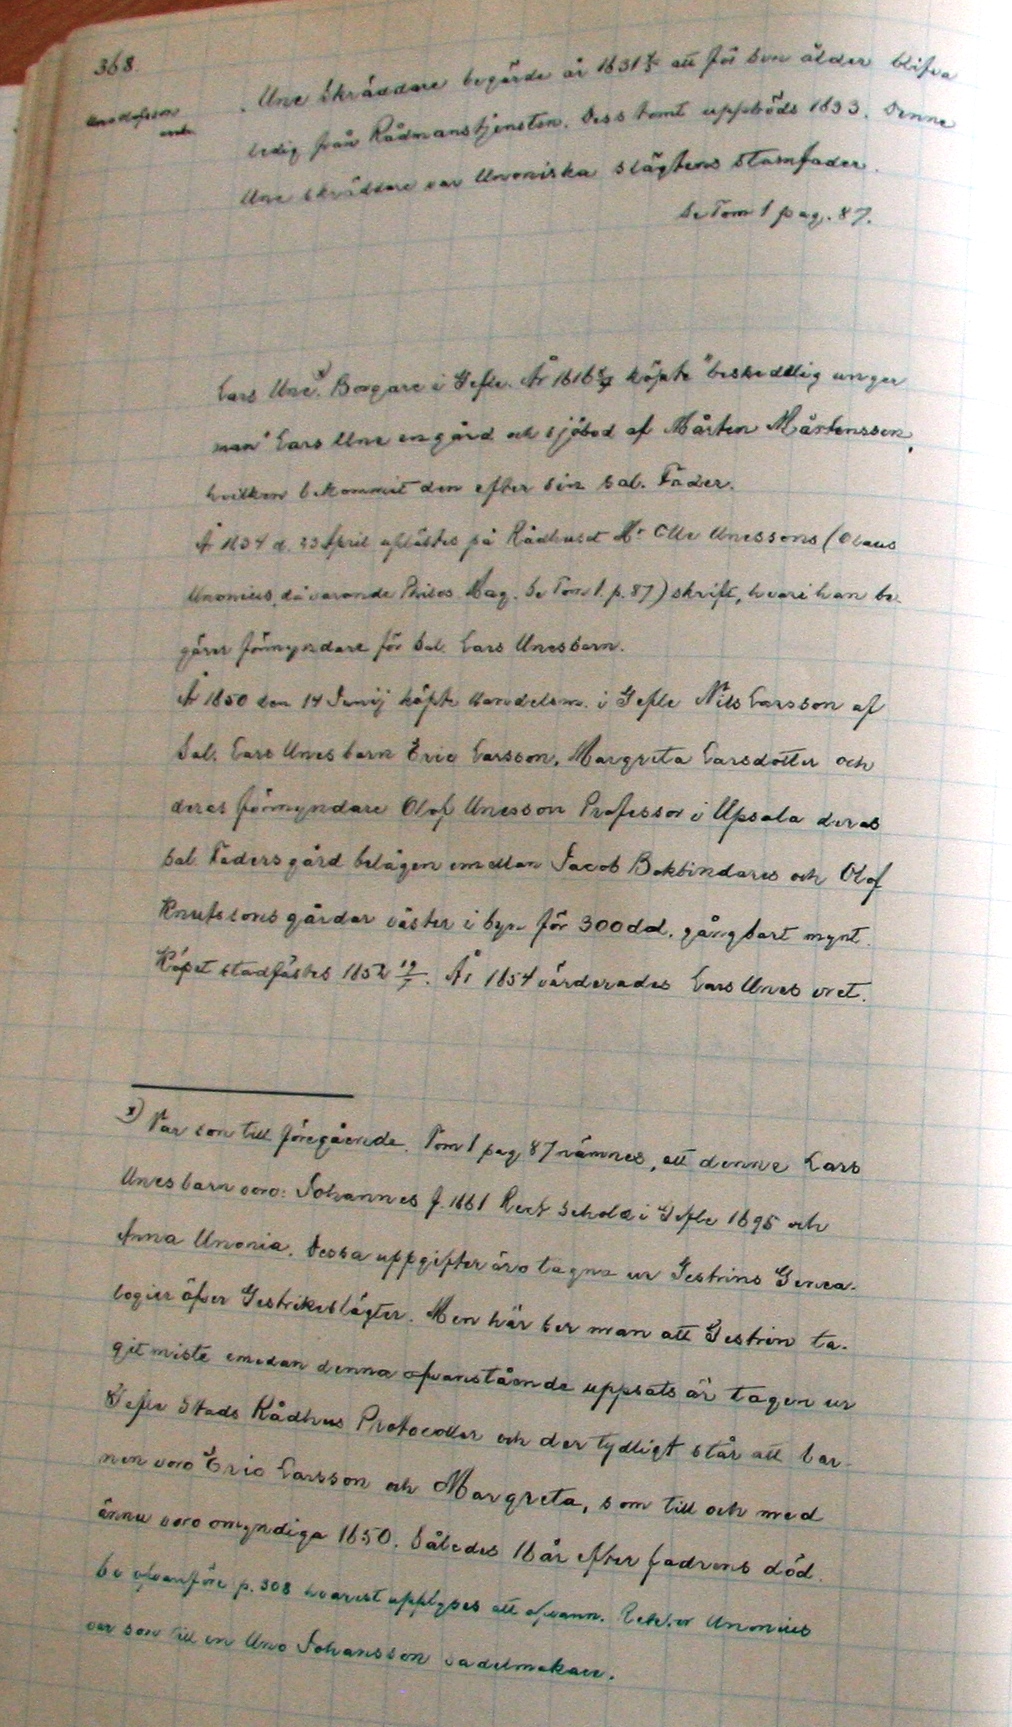 368.
Une Skräddare begärde år 1631 att för sin ålder blifva
ledig från Rådmanstjensten. Dess tomt uppböds 1633. Denne
Une skräddare var Unoniska slägtens Stamfader.
Se Tom 1 pag. 87.
Lars Une. x) Borgare i Gefle. År 1616 köpte "beskedlig unger
man" Lars Une en gård och sjöbod af Mårten Mårtensson,
hvilken bekommit den efter sin sal. Fader.
År 1634 d. 23 April uplästes på Rådhuset Mr Olle Unessons (Olaus
Unonius, dåvarande Philos. Mag. Se Tom 1. p. 87) skrift, hvari han be-
gärer förmyndare för sal. Lars Unes barn.
År 1650 den 14 Junij köpte Handelsm. i Gefle Nils Larsson af
Sal. Lars Unes barn Eric Larsson, Margreta Larsdotter och
deras förmyndare Olof Unesson Professor i Upsala deras
sal. Faders gård belägen emellan Jacob Bokbindares och Olof
Knutssons gårdar väster i byn för 300 dd. gångbart mynt.
Köpet stadfästes 1652 19/7. År 1654 värderades Lars Unes vret.
x) Var son till föregående. Tom 1 pag 87 nämnes, att denne Lars
Unes barn voro: Johannes f. 1661 Rect. Scholæ i Gefle 1695 och
Anna Unonia. Dessa uppgifter äro tagna ur Gestrins Genea-
logier öfver Gestrikeslägter. Men här ser man att Gestrin ta-
git miste emedan denna ofvanstående uppsats är tagen ur
Gefle Stads Rådhus Protocoller och der tydligt står att bar-
nen voro Eric Larsson och Margreta, som till och med
ännu voro omyndiga 1650. Således 16 år efter fadrens död.
Se ofvanföre p. 308 hvarest upplyses att ofvann. Rektor Unonius
var son till en Uno Johansson sadelmakare.